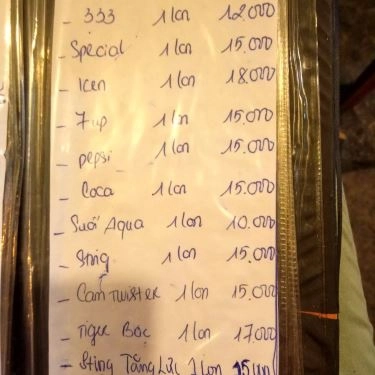 - 333 1 lon 12.000
- Special 1 lon 15.000
- Ken 1 lon 18.000
- 7 up 1 lon 15.000
- pepsi 1 lon 15.000
- Coca 1 lon 15.000
- Suối Aqua 1 lon 10.000
- Sting 1 lon 15.000
- Cam Twister 1 lon 15.000
- Tiger Bạc 1 lon 17.000
- Sting Tăng Lực 1 lon 15.000